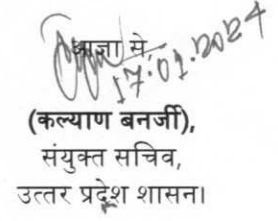 आज्ञा से,
17.01.2024
(कल्याण बनर्जी),
संयुक्त सचिव,
उत्तर प्रदेश शासन।